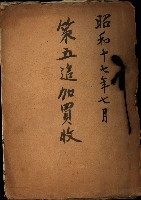 昭和十七年七月
第五追加買收